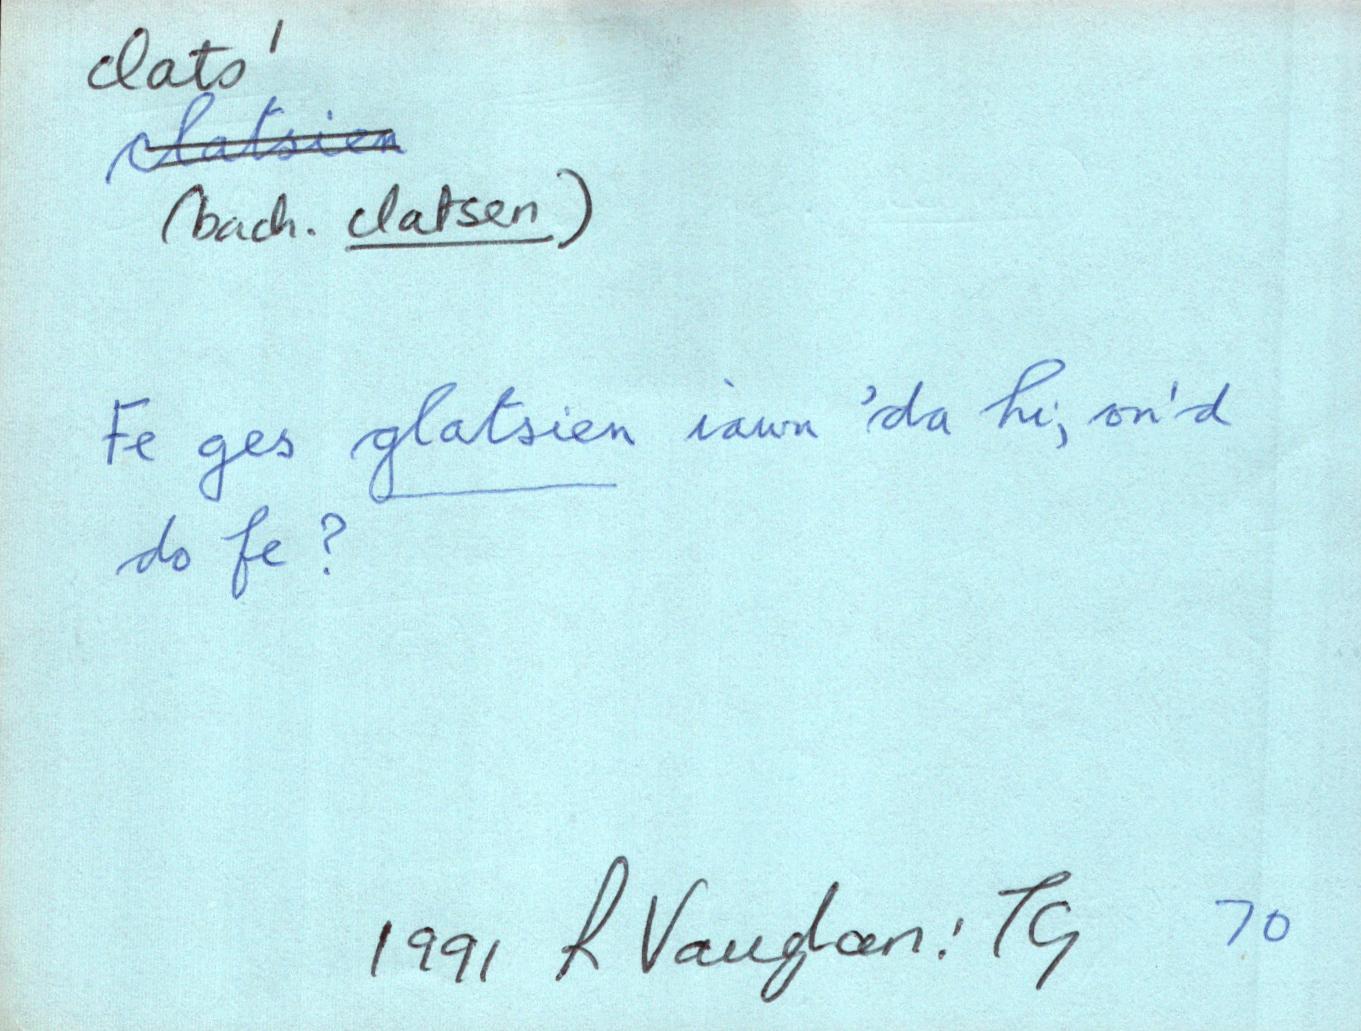 clats¹
clatsien
(bach. clatsen)
Fe ges glatsien iawn 'da hi, on'd
do fe?
1991 R Vaughan: TG 70